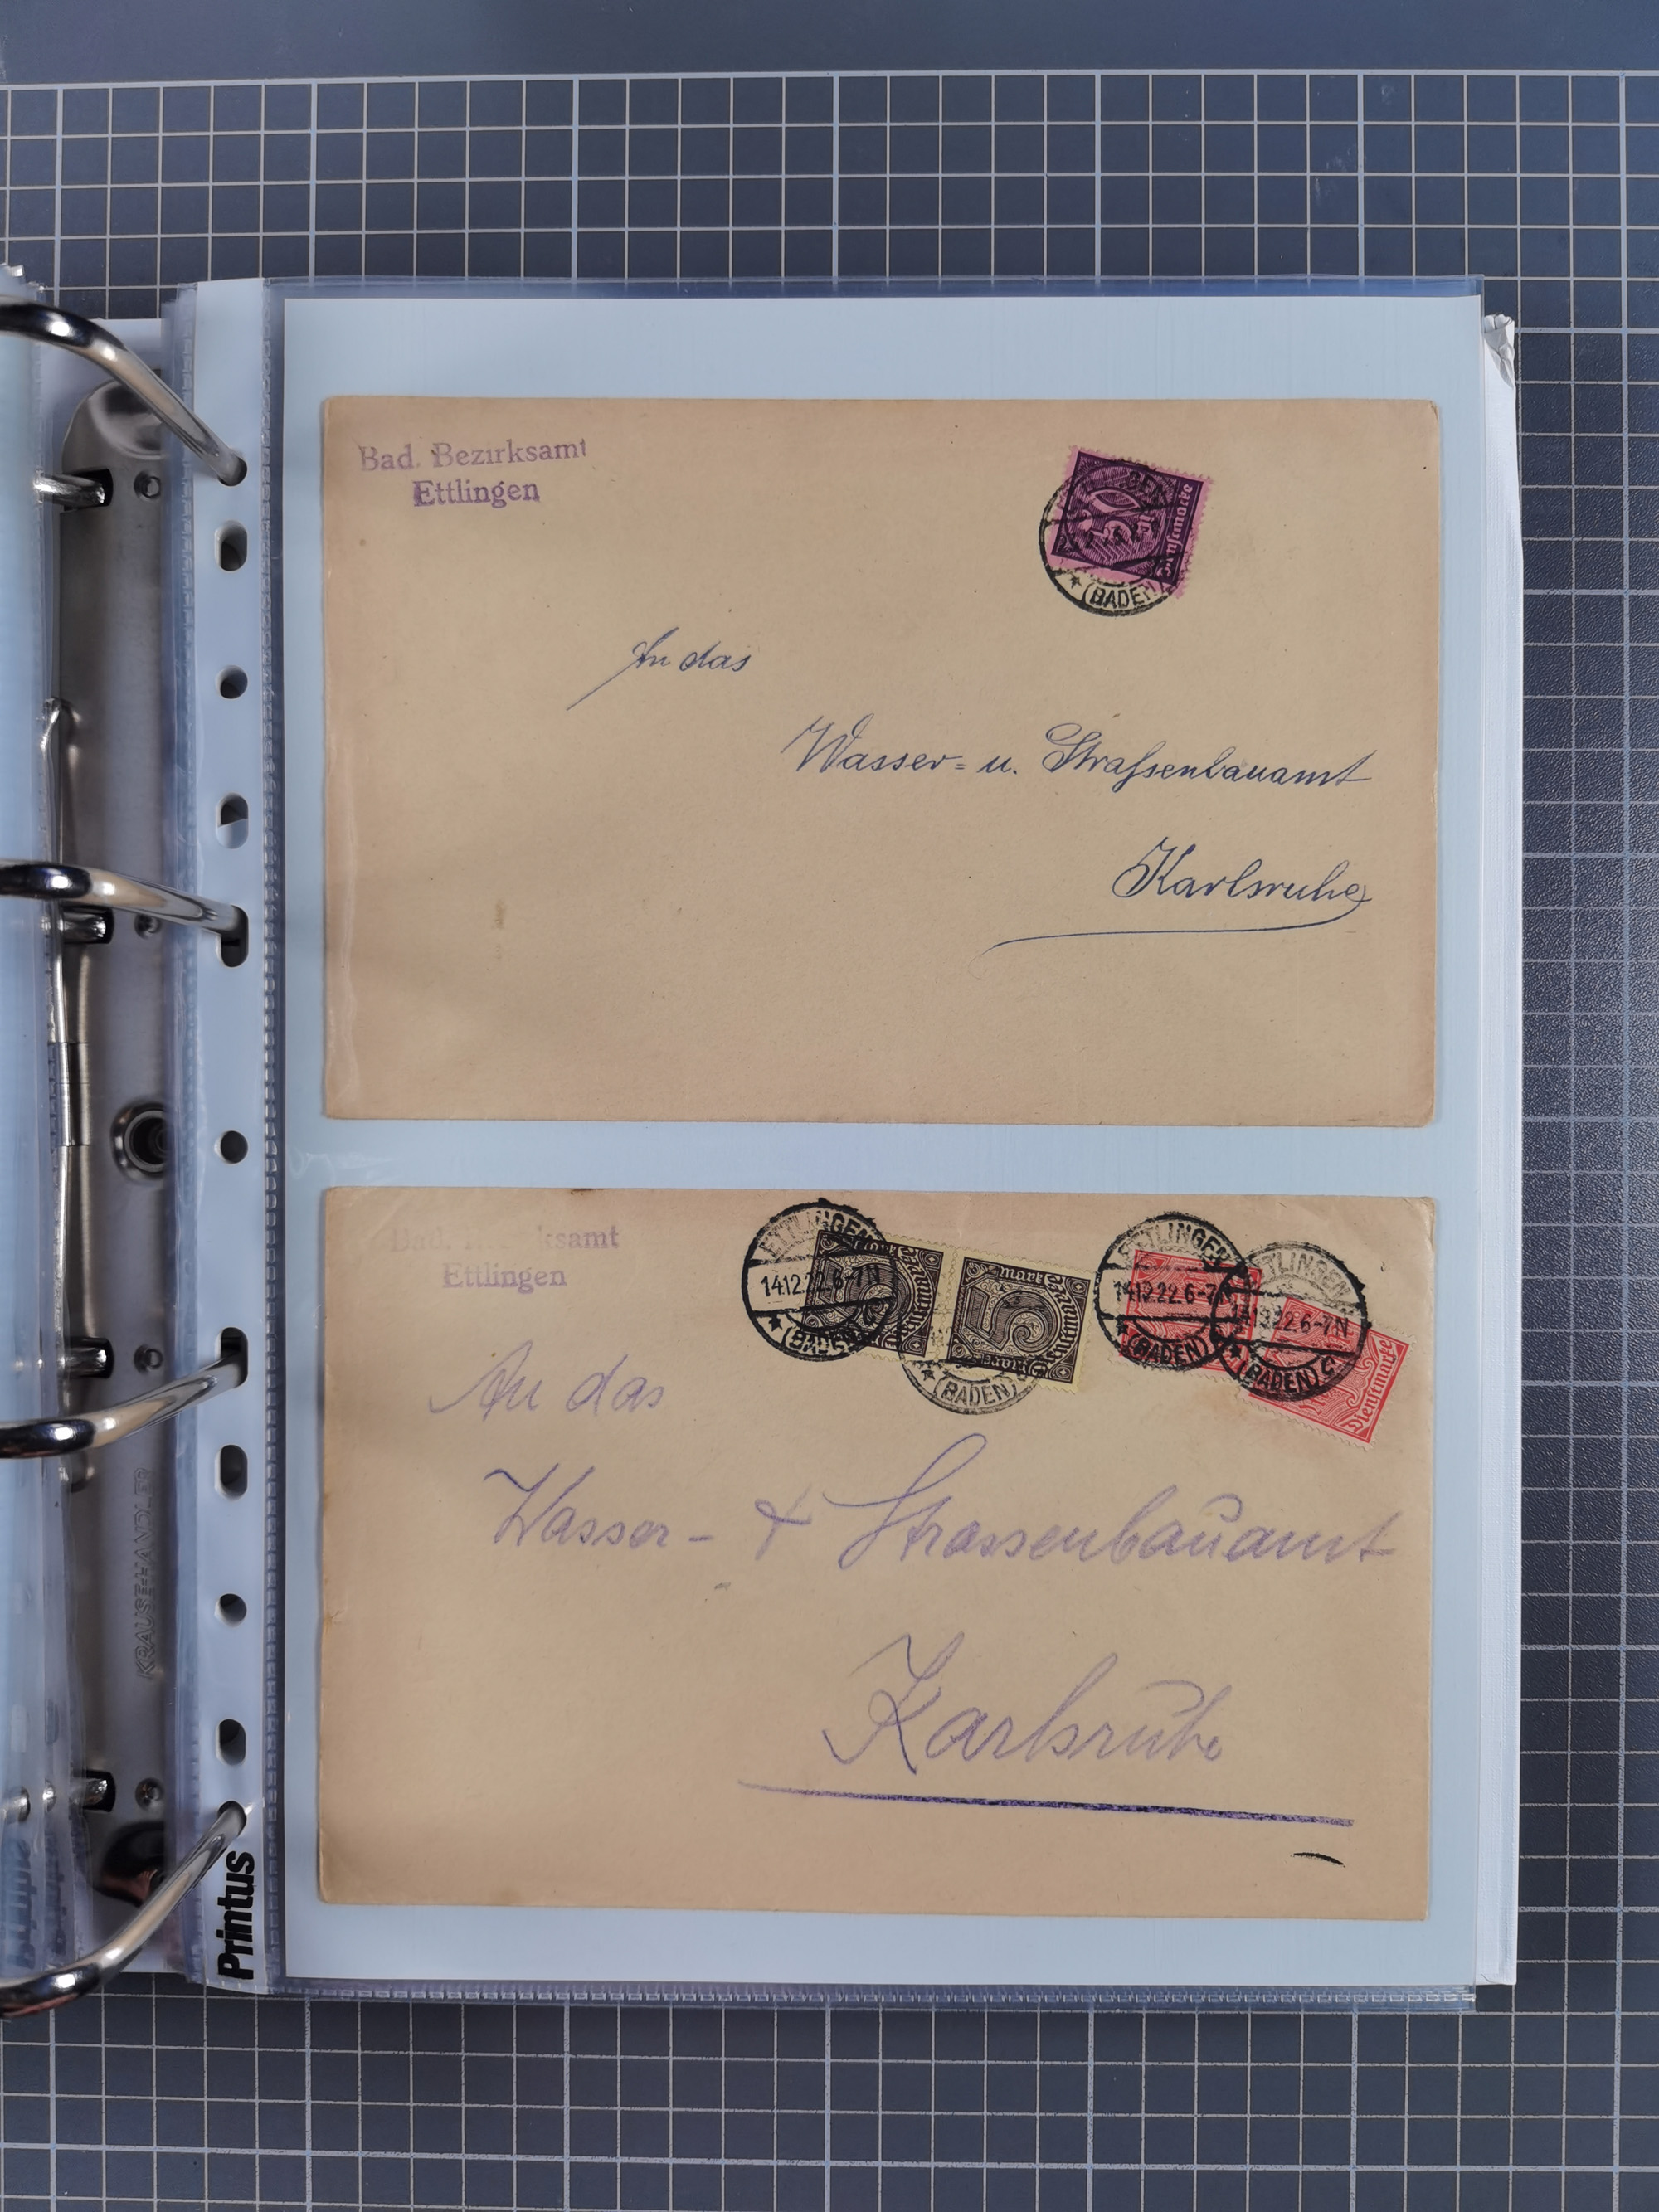 Bad. Bezirksamt
Ettlingen
50
Dienstmarke
(BADEN)
An das
Wasser= u. Strassenbauamt
Karlsruhe
Bad. Bezirksamt
Ettlingen
ETTLINGEN
14.12.22.6-7N
(BADEN)
5
Mark
Dienstmarke
(BADEN)
ETTLINGEN
14.12.22.6-7N
(BADEN)
ETTLINGEN
14.12.22.6-7N
(BADEN)
Dienstmarke
An das
Wasser- & Strassenbauamt
Karlsruhe
KRAUSE-HANDLER
Printus